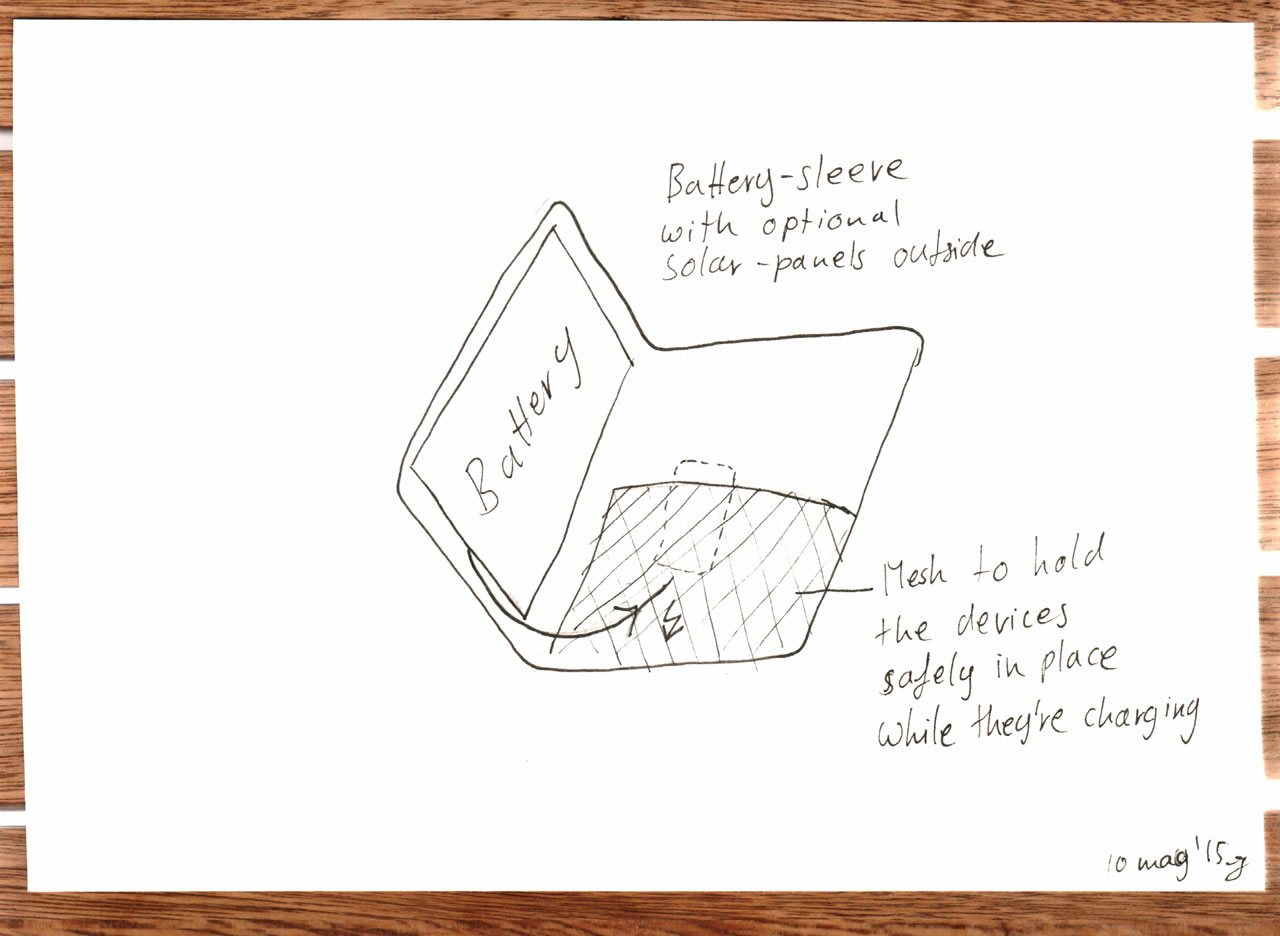 Battery-sleeve
with optional
solar-panels outside
Battery
Mesh to hold
the devices
safely in place
while they're charging
10 mag '15